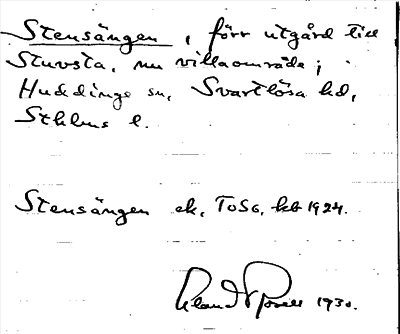 Stensängen, förr utgård till
Stuvsta, nu villaområde;
Huddinge sn, Svartlösa hd,
Sthlms l.
Stensängen ek, ToSo, kb 1924.
1930.